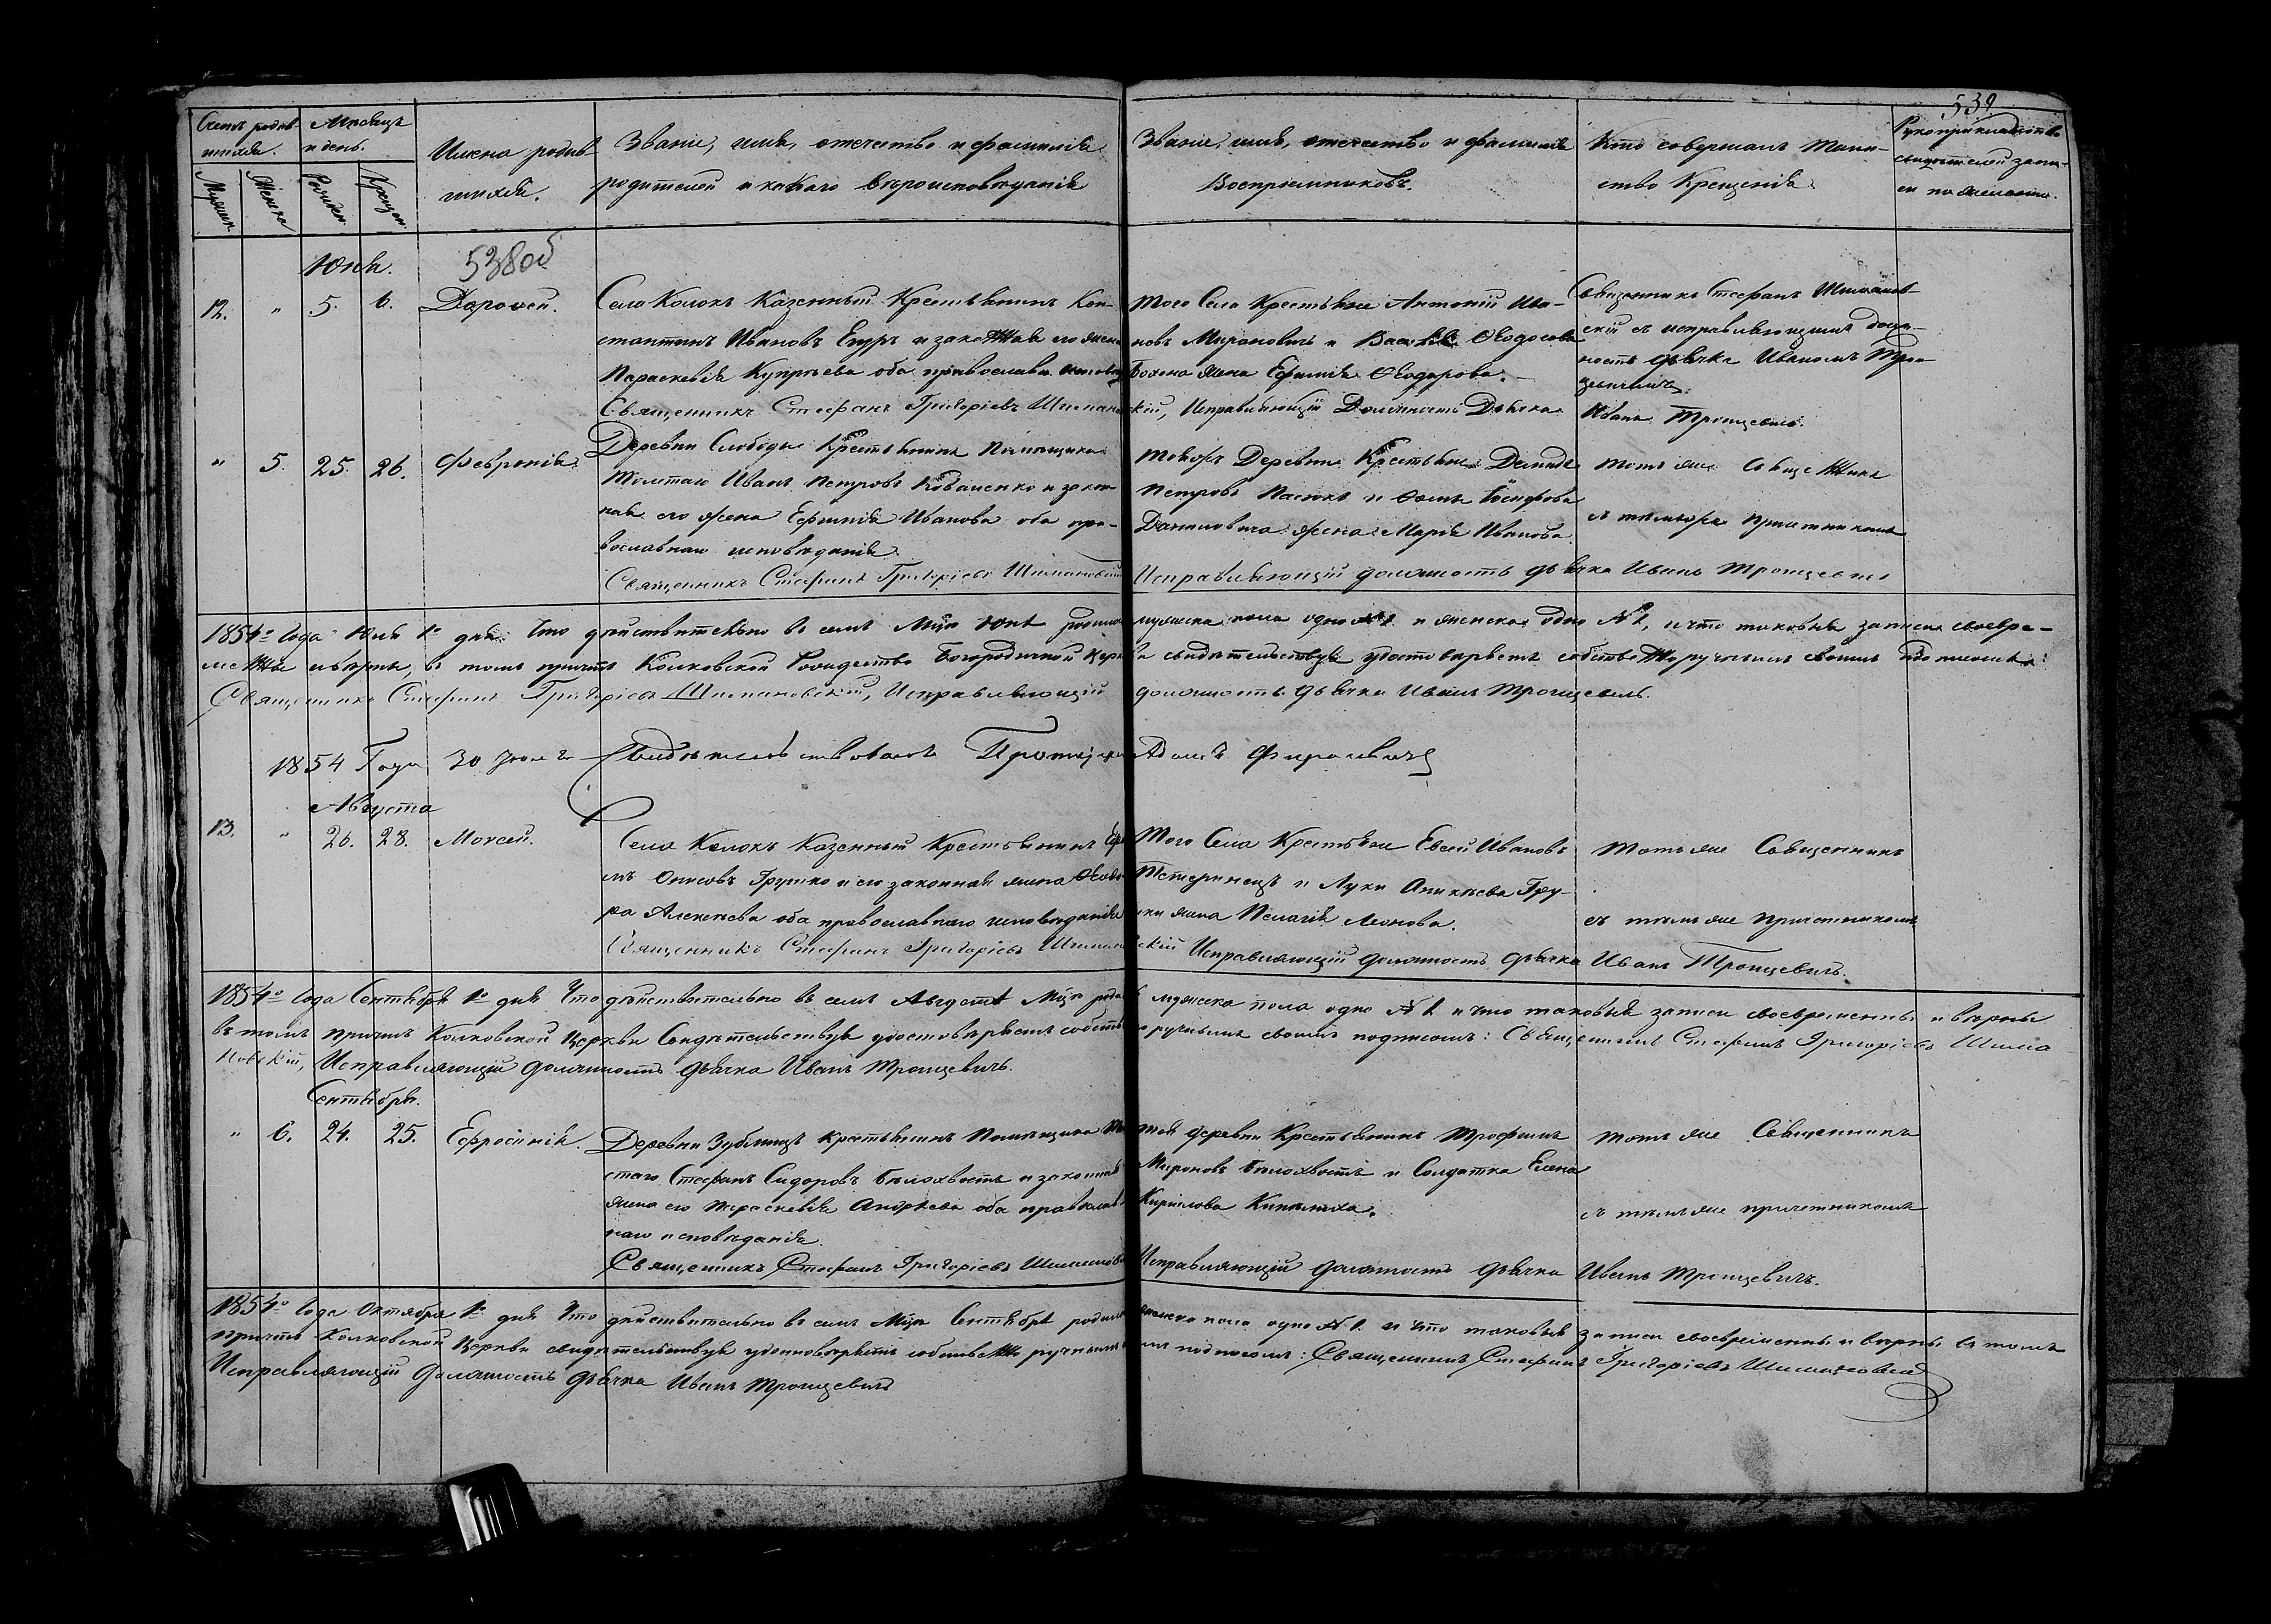 539
Счетъ родив- Мѣсяцъ
шихся. и день.
Мужеск. Женска Рожден. Крещен.
Имена родив-
шихся.
Званіе, имя, отечество и фамилія
родителей и какого вѣроисповѣданія
Званіе, имя, отечество и фамилія
Воспріемниковъ.
Кто совершалъ таин-
ство Крещенія
Рукоприкладство
свидѣтелей запи-
си по желанію.
Юня.
538об
12. " 5. 6. Дорофей.
Села Колокъ Казенный Крестьянинъ Кон-
стантинъ Ивановъ Ецуръ и законная его жена
Параскевія Купріева оба православн. исповѣд
Священникъ Стефанъ Григоріевъ Шиманов
Того Села Крестьяне Антоній Ива-
новъ Мироновичъ и Ѳеодосова
жена Ефимія Ѳеодорова.
скій, Исправляющій Должность Дьячка
Священникъ Стефанъ Шиманов-
скій съ исправляющимъ долж-
ность дьячка Иваномъ Тро-
цевичемъ.
Иванъ Троцевичъ.
" 5. 25. 26. Февронія.
Деревни Слободы Крестьянинъ Помѣщика
Толстаго Иванъ Петровъ Коваленко и закон-
ная его жена Ефимія Иванова оба пра-
вославнаго исповѣданія.
Священникъ Стефанъ Григоріевъ Шимановскій
Тойже Деревни Крестьяне Демидъ
Петровъ Пасюкъ и Ѳомы Іосифова
Даниловича жена Марія Иванова.
Исправляющій должность дьячка Иванъ Троцевичъ
Тотъ же Священникъ
съ тѣмъже причетникомъ
1854го Года Юля 1го дня Что дѣйствительно въ семъ Мцѣ Юнѣ родилось
мужеска пола одно №1 и женска одно №1, и что таковыя записи своевре-
менны и вѣрны, въ томъ причтъ Колковской Рождество Богородичной Церк
ви свидѣтельствуя удостовѣряетъ собственноручнымъ своимъ подписомъ:
Священникъ Стефанъ Григоріевъ Шимановскій, Исправляющій
должность дьячка Иванъ Троцевичъ.
1854 Года 30 Свидѣтельствовалъ Протоіерей
Адамъ
Августа
13. " 26. 28. Моисей.
Села Колокъ Казенный Крестьянинъ
Грушко и его законная жена Ѳеодо-
ра Алексѣева оба православнаго исповѣданія
Священникъ Стефанъ Григоріевъ Шиманов
Того Села Крестьяне Евсей Ивановъ
и Луки Аникіева Гру-
шки жена Пелагія Леонова.
скій Исправляющій должность дьячка Иванъ Троцевичъ.
Тотъ же Священникъ
съ тѣмъ же причетникомъ
1854го Года Сентября 1го дня Что дѣйствительно въ семъ Августѣ Мцѣ родил
мужеска пола одно №1 и что таковыя записи своевременны и вѣрны
въ томъ причтъ Колковской Церкви Свидѣтельствуя удостовѣряетъ собств
оручнымъ своимъ подписомъ: Священникъ Стефанъ Григоріевъ Шима
новскій, Исправляющій должность дьячка Иванъ Троцевичъ.
Сентября.
" 6. 24. 25. Ефросинія.
Деревни Зублищъ Крестьянинъ Помѣщика Тол
стаго Стефанъ Сидоровъ Бѣлохвостъ и законная
жена его Параскевія Андреева оба православ-
наго исповѣданія.
Священникъ Стефанъ Григоріевъ Шимановс
той деревни Крестьянинъ Трофимъ
Мироновъ Бѣлохвостъ и Солдатка Елена
Кирилова
Исправляющій должность дьячка Иванъ Троцевичъ.
Тотъ же Священникъ
съ тѣмъ же причетникомъ
1854го Года Октября 1го дня Что дѣйствительно въ семъ Мцѣ Сентябрѣ родилось
женска пола одно №1. и что таковыя записи своевременны и вѣрны въ томъ
причтъ Колковской Церкви свидѣтельствуя удостовѣряетъ собственноручнымъ
подписомъ: Священникъ Стефанъ Григоріевъ Шимановскій
Исправляющій должность дьячка Иванъ Троцевичъ